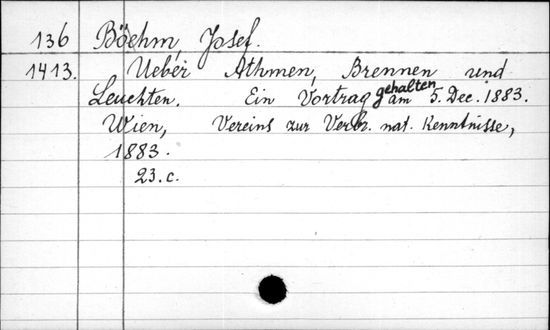 136 Böehm, Josef.
1413. Ueber Athmen, Brennen und
Leuchten. Ein Vortrag gehalten am 5. Dec. 1883.
Wien, Vereins zur Verbr. nat. Kenntnisse,
1883.
23. c.